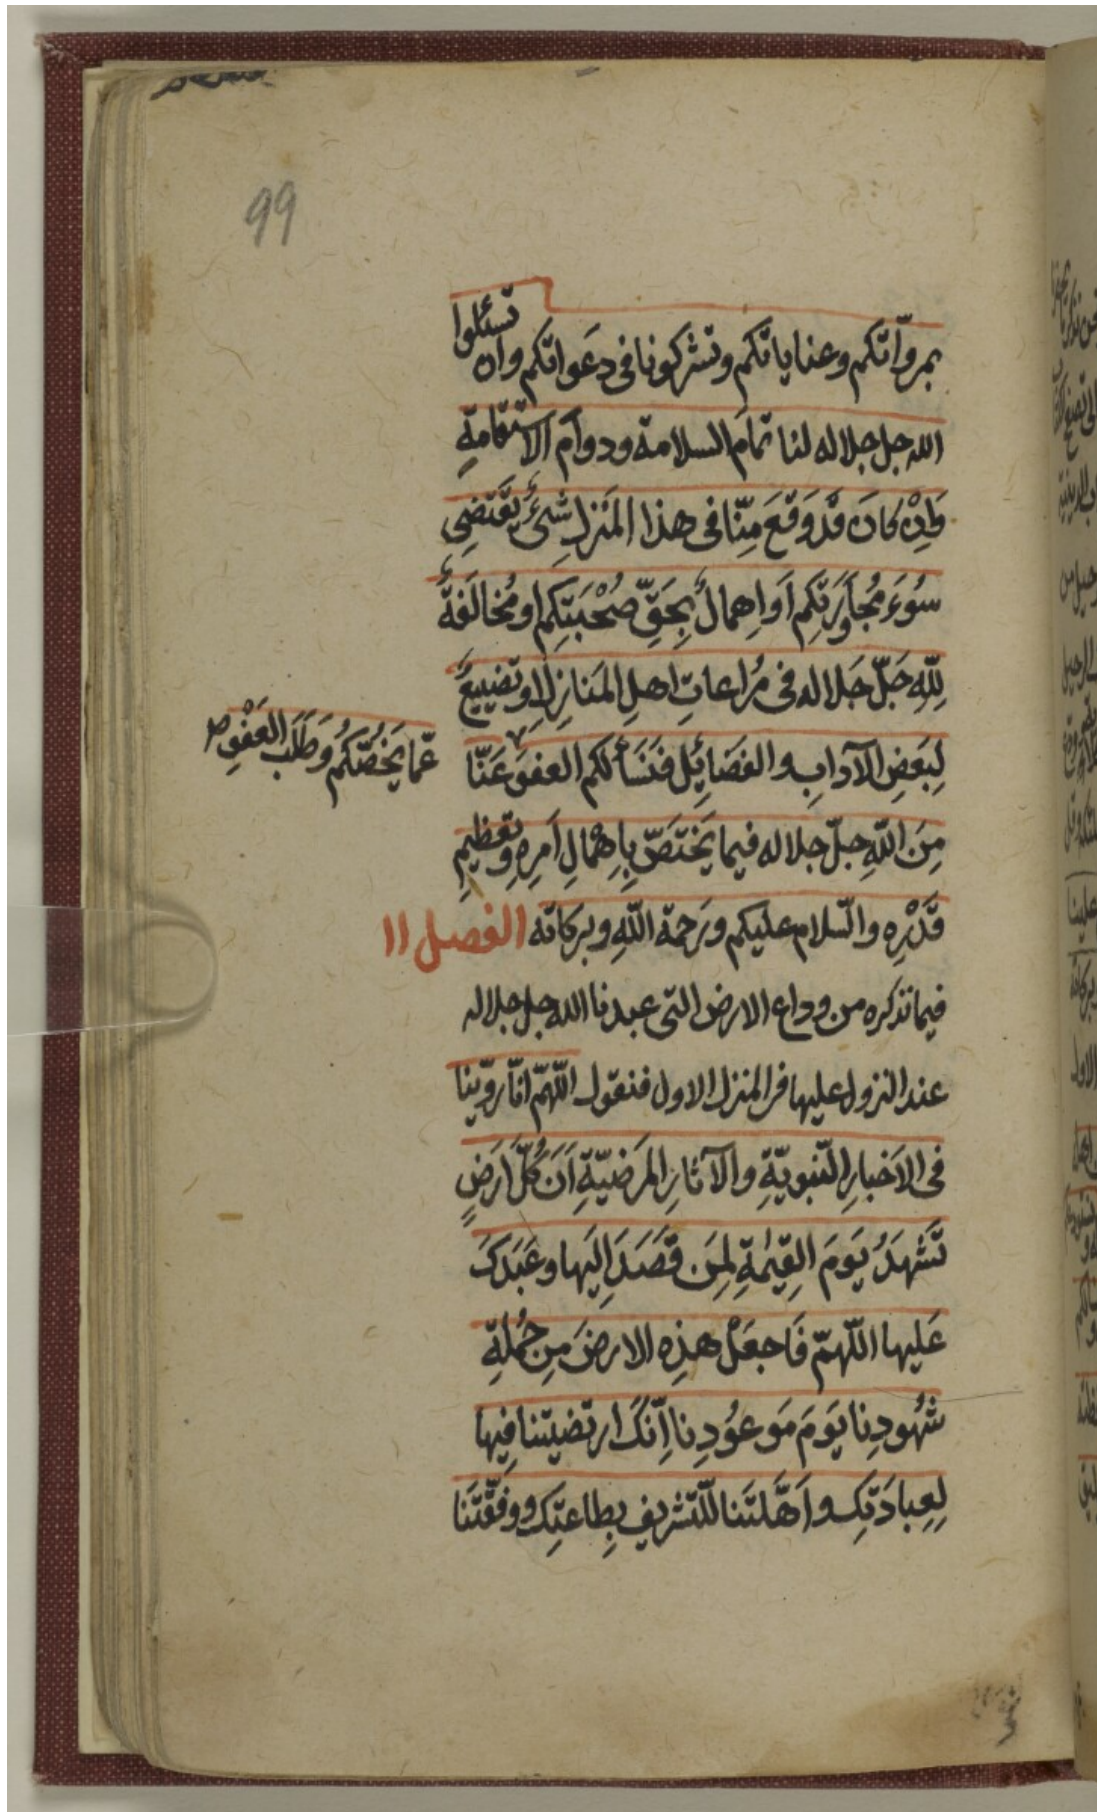 99
بمروّاتكم وعناياتكم وتشركونا فى دعواتكم وان تسئلوا
الله جل جلاله لنا تمام السلامة ودوام الاستقامةِ
وَاِنْ كانَ قَدْ وَقَعَ مِنّا فى هذا المَنزِلِ شَىْءٌ يَقْتَضِى
سُوءَ مُجاوَرَتِكم اَو اِهمالٌ بِحَقِّ صُحْبَتِكم او مُخالَفَةٌ
لِلّهِ جَلّ جَلاله فى مُراعاتِ اهلِ المَنازِلِ او تضييعٌ
لِبَعضِ الآدابِ والفضَائِل فنَسَألكم العفوَ عَنّا
عمّا يَخُصّكُم وَطَلَب العَفْوِ صح
مِنَ اللّهِ جلّ جلاله فيما يَختَصّ بِاِهْمالِ اَمرِهِ وتعظيمِ
قَدْرِه والسّلام عليكم ورَحمة اللّهِ وبركاته الفصل ١١
فيما نذكره من وداع الارض التى عبدنا الله جل جلاله
عند النزول عليها فى المنزل الاول فنقول اللّهمّ انّا روّينا
فى الاَخبارِ النّبويّةِ والآثارِ المرَضيّةِ اَنَ كُلَّ ارَضٍ
تَشْهَدُ يَومَ القِيٰمةِ لِمَن قَصَدَ اِلَيها وعَبَدَكَ
عَلَيها اللّهمّ فَاجعَلْ هذِه الارضَ مِن جُملَةِ
شُهُودِنا يَومَ مَوعُودِنا اِنّكَ ارتضيتنا فِيها
لِعِبادَتِك واَهَّلتَنا للتّشريف بِطاعتِك ووفّقتَنا